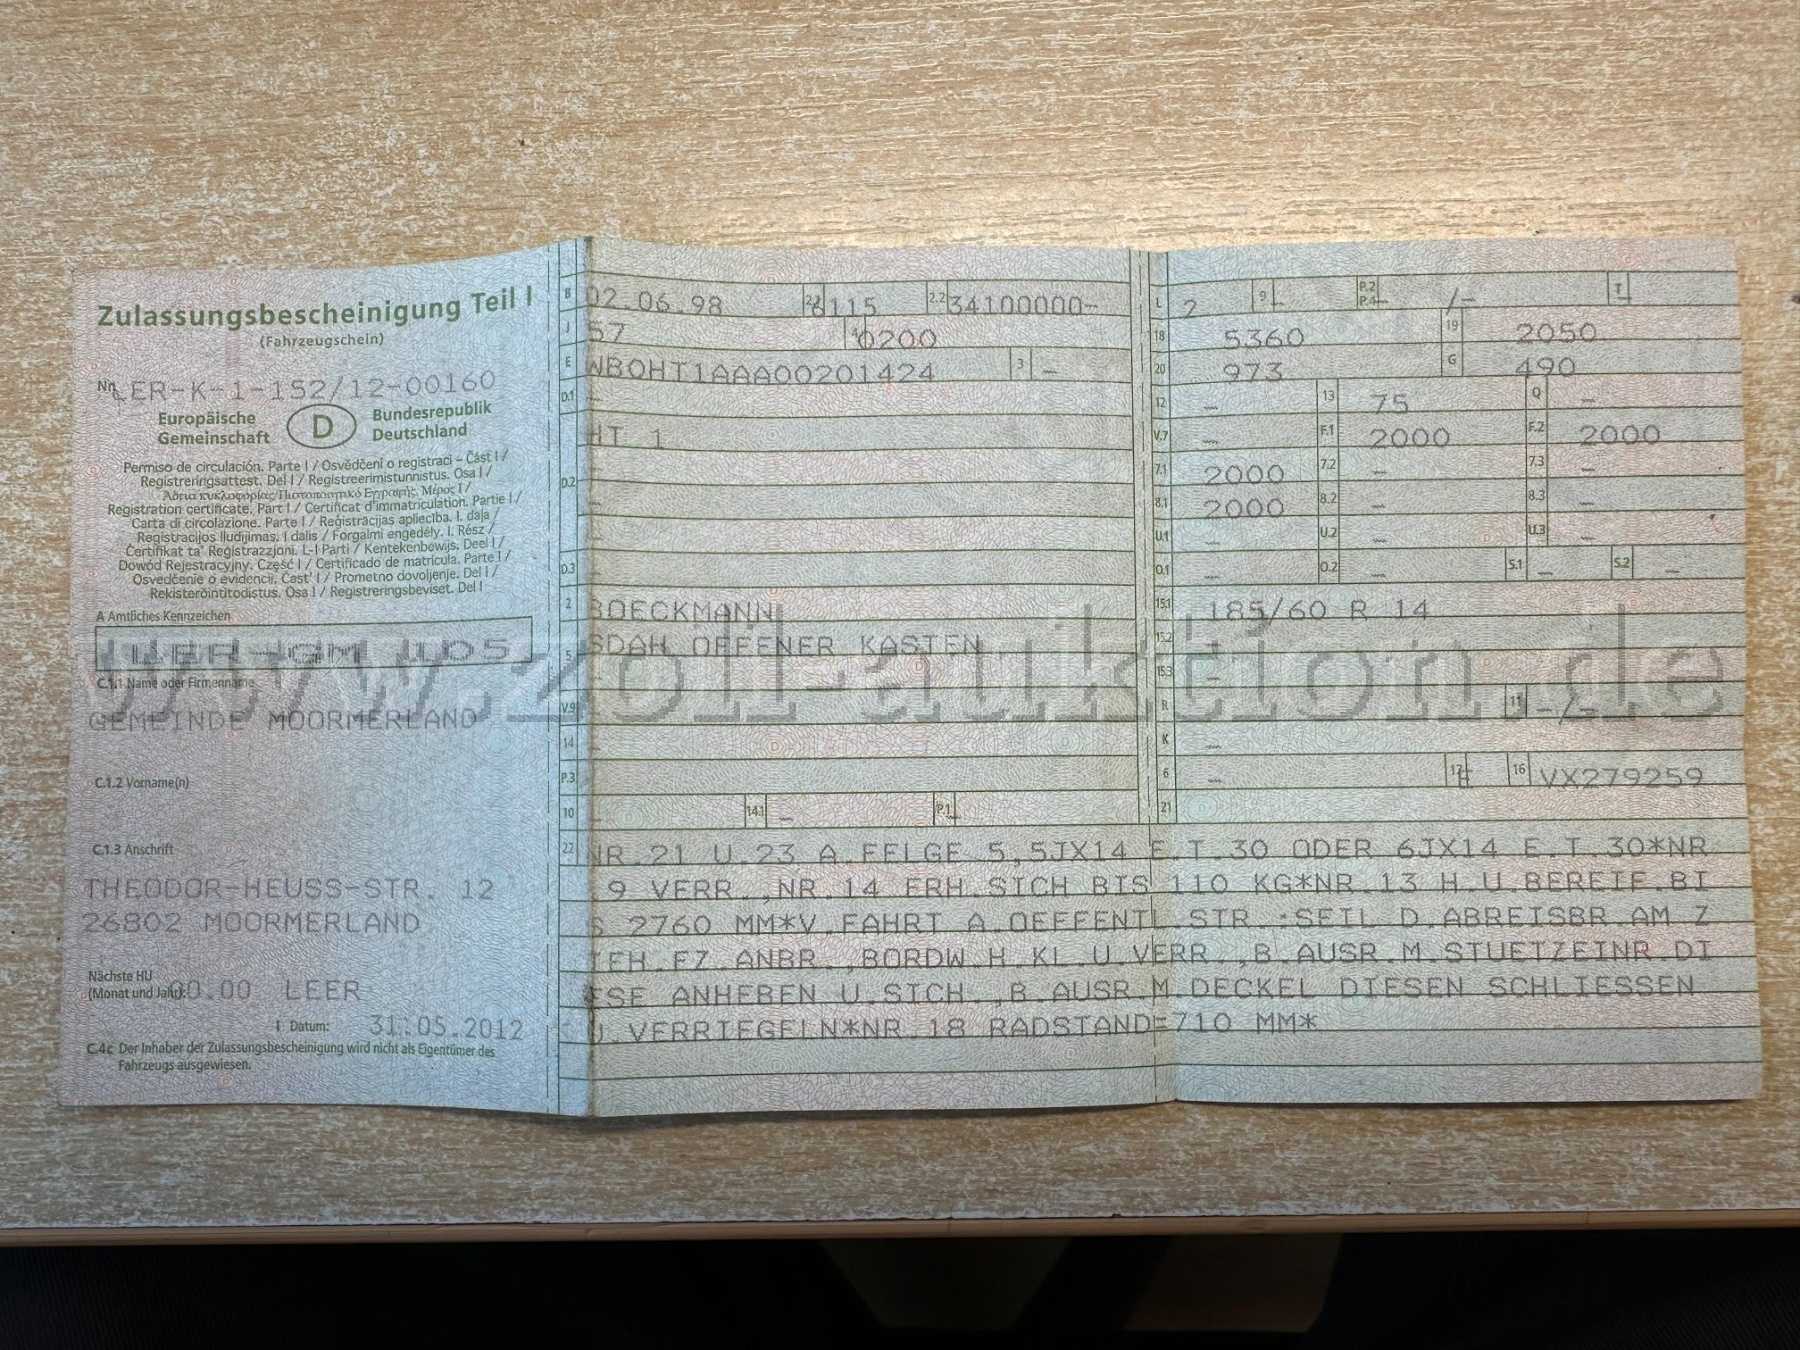 Zulassungsbescheinigung Teil I
(Fahrzeugschein)
Nr. LER-K-1-152/12-00160
Europäische Gemeinschaft D Bundesrepublik Deutschland
Permiso de circulación. Parte I / Osvědčení o registraci – Část I /
Registreringsattest. Del I / Registreerimistunnistus. Osa I /
Άδεια κυκλοφορίας/Πιστοποιητικό Εγγραφής. Μέρος I /
Registration certificate. Part I / Certificat d'immatriculation. Partie I /
Carta di circolazione. Parte I / Reģistrācijas apliecība. I. daļa /
Registracijos liudijimas. I dalis / Forgalmi engedély. I. Rész /
Ċertifikat ta' Reġistrazzjoni. L-I Parti / Kentekenbewijs. Deel I /
Dowód Rejestracyjny. Część I / Certificado de matrícula. Parte I /
Osvedčenie o evidencii. Časť I / Prometno dovoljenje. Del I /
Rekisteröintitodistus. Osa I / Registreringsbeviset. Del I
A Amtliches Kennzeichen
C.1.1 Name oder Firmenname
GEMEINDE MOORMERLAND
C.1.2 Vorname(n)
C.1.3 Anschrift
THEODOR-HEUSS-STR. 12
26802 MOORMERLAND
Nächste HU
(Monat und Jahr): 00.00 LEER
I Datum: 31.05.2012
C.4c Der Inhaber der Zulassungsbescheinigung wird nicht als Eigentümer des
Fahrzeugs ausgewiesen.
B 02.06.98 2.1 6115 2.2 34100000-
J 57 4 0200
E WBOHT1AAA00201424 3 –
D.1 –
HT 1
D.2 –
D.3
2 BOECKMANN
5 SDAH OFFENER KASTEN
V.9
14 –
P.3
10 14.1 – P.1 –
L 2 9 – P.2 P.4 – /– T –
18 5360 19 2050
20 973 G 490
12 – 13 75 Q –
V.7 – F.1 2000 F.2 2000
7.1 2000 7.2 – 7.3 –
8.1 2000 8.2 – 8.3 –
U.1 – U.2 – U.3 –
O.1 – O.2 – S.1 – S.2 –
15.1 185/60 R 14
15.2 –
15.3 –
R 11 – /–
K –
6 – 17 16 VX279259
21
22 NR.21 U.23 A.FELGE 5,5JX14 E.T.30 ODER 6JX14 E.T.30*NR
.9 VERR.,NR.14 ERH.SICH BIS 110 KG*NR.13 H.U.BEREIF.BI
S 2760 MM*V.FAHRT A.OEFFENTL.STR.:SEIL D.ABREISBR.AM Z
IEH.FZ.ANBR.,BORDW.H.KL.U.VERR.,B.AUSR.M.STUETZEINR.DI
ESE ANHEBEN U.SICH.,B.AUSR.M.DECKEL DIESEN SCHLIESSEN
U.VERRIEGELN*NR.18 RADSTAND=710 MM*
www.zoll-auktion.de